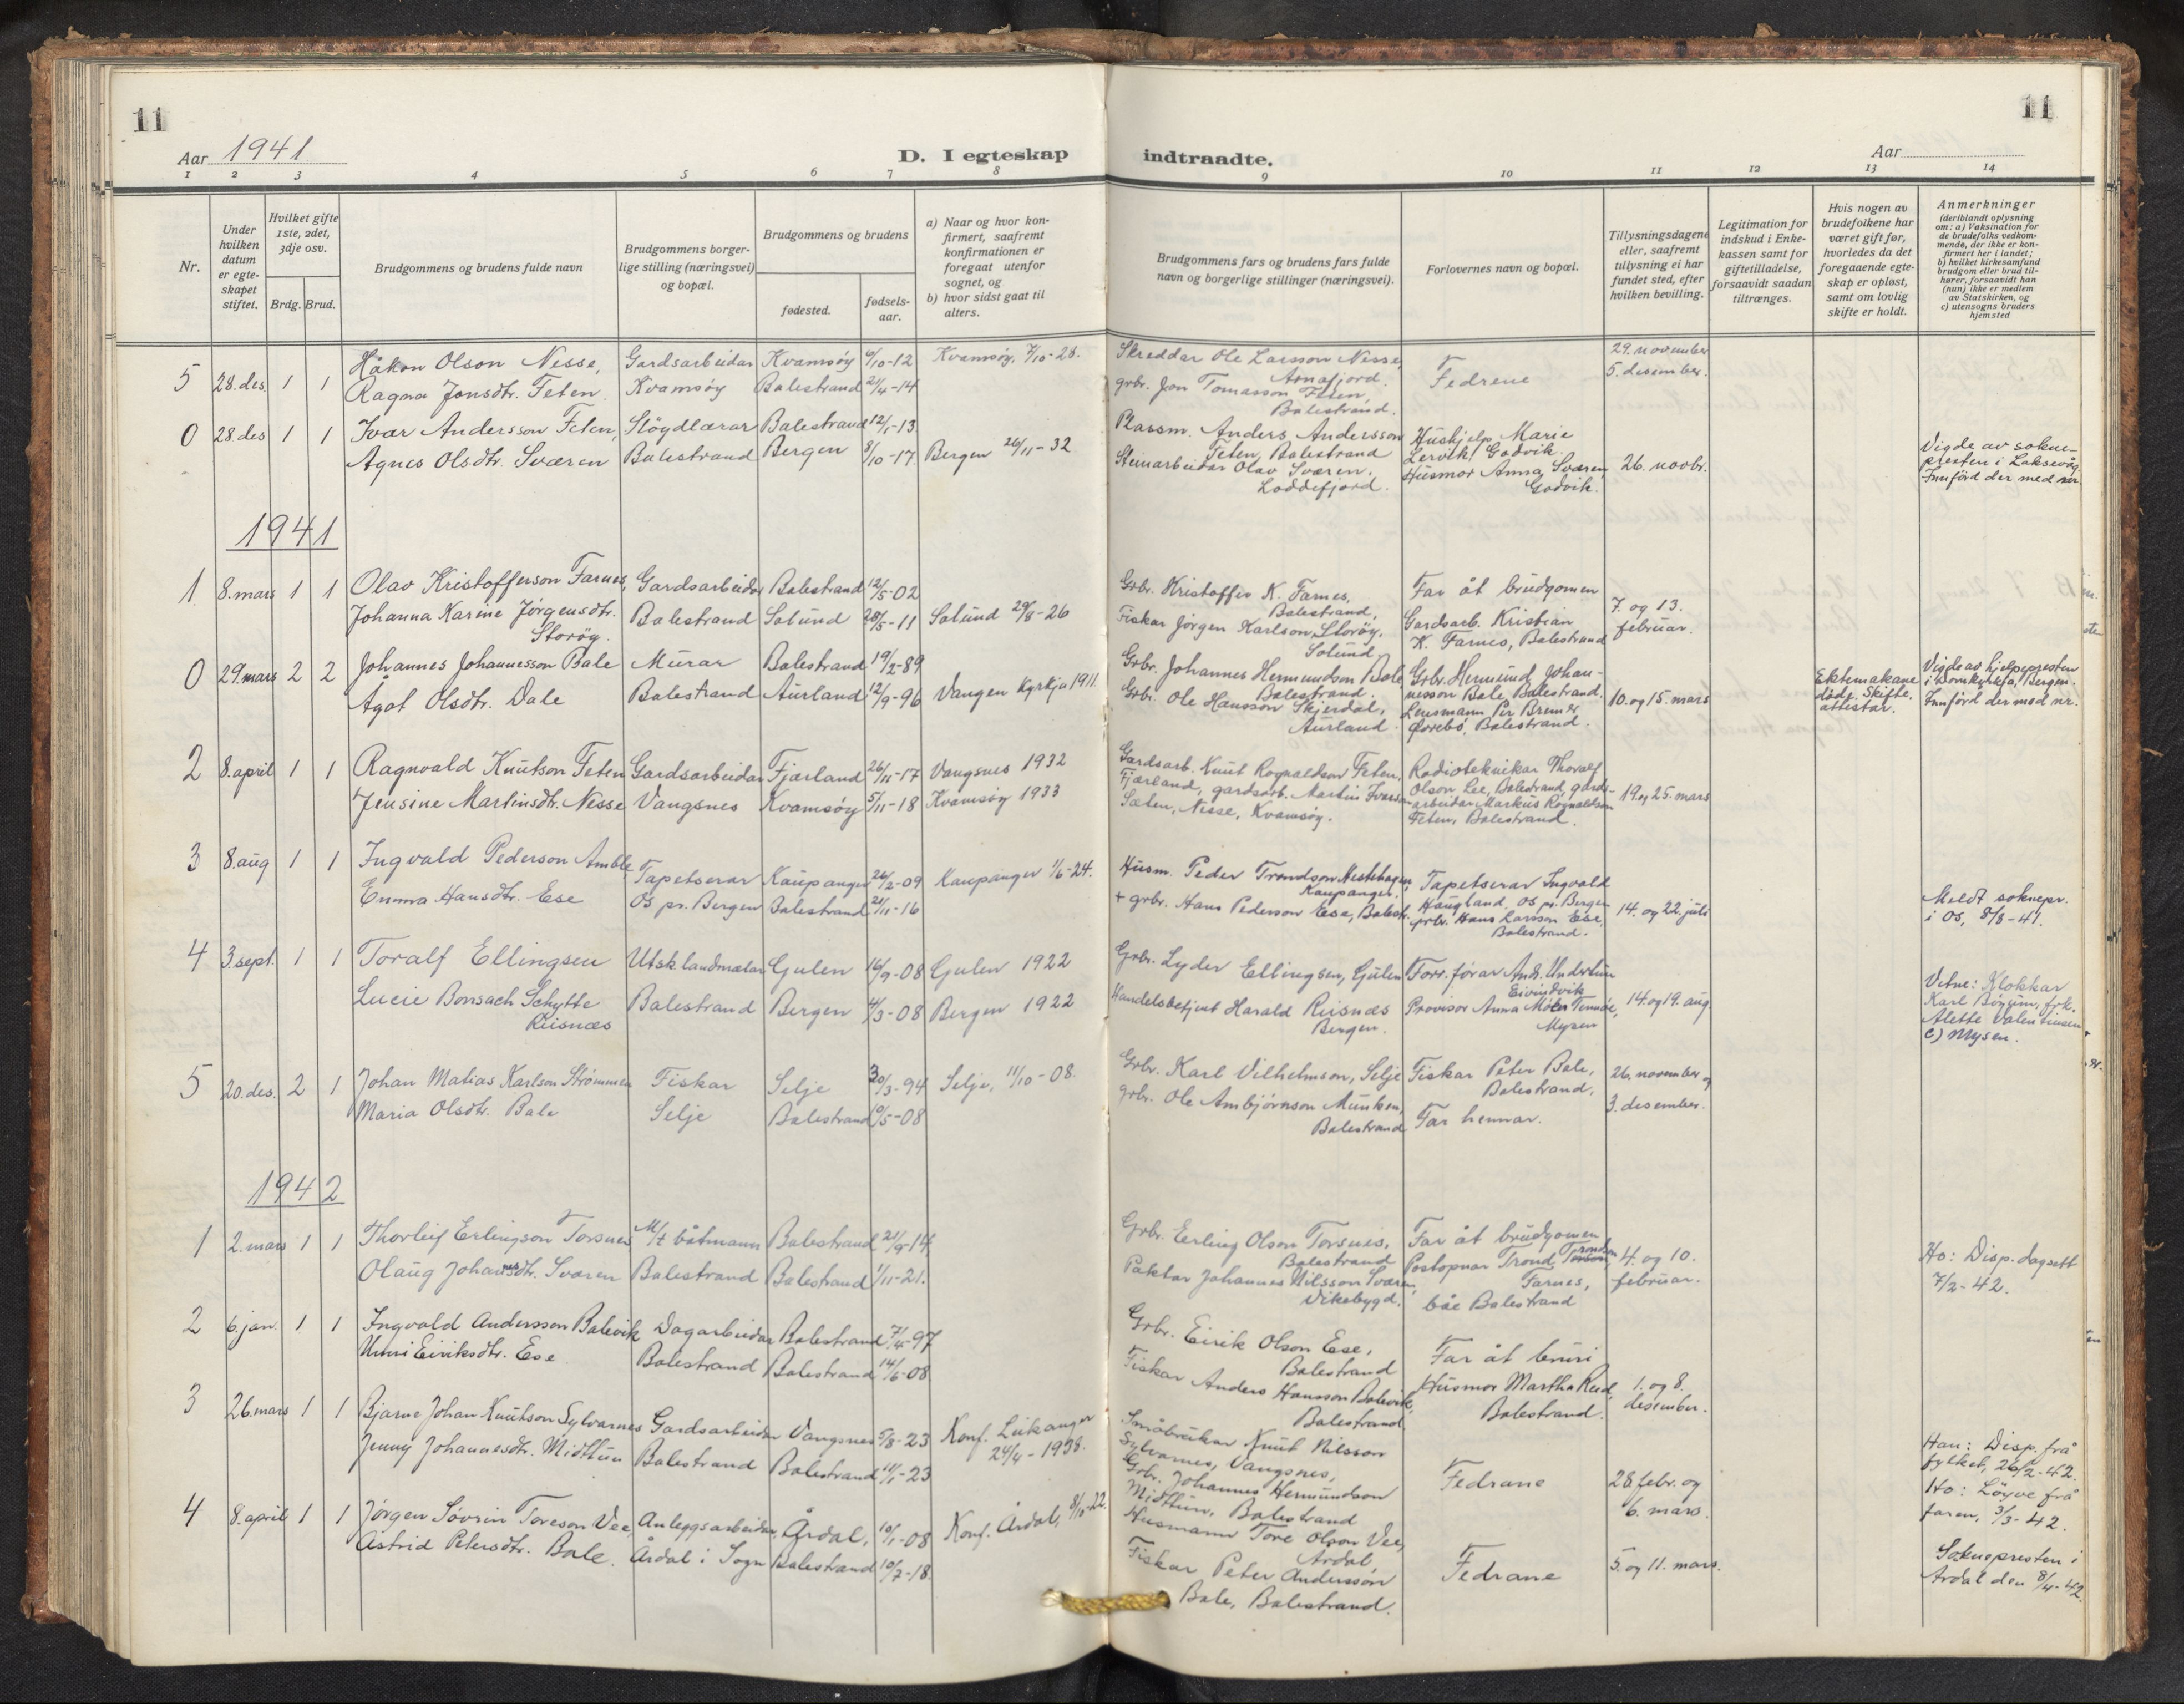 11
Aar 1941
D. I egteskap
1 2 3 4 5 6 7 8
Nr.
Under hvilken datum er egteskapet stiftet.
Hvilket gifte 1ste, 2det, 3dje osv.
Brdg. Brud.
Brudgommens og brudens fulde navn
Brudgommens borgerlige stilling (næringsvei) og bopæl.
Brudgommens og brudens
fødested.
fødselsaar.
a) Naar og hvor konfirmert, saafremt konfirmationen er foregaat utenfor sognet, og
b) hvor sidst gaat til alters.
5 28. des. 1 1 Håkon Olson Nesse, Gardsarbeidar Kvamsöy 6/10-12 Kvamsöy, 7/10-28.
Ragna Jonsdtr. Feten. Kvamsöy Balestrand 21/4-14
0 28. des 1 1 Ivar Andersson Feten, Slöydlærar Balestrand 12/1-13
Agnes Olsdtr. Sværen Balestrand Bergen 8/10-17 Bergen 26/11-32
1941
1 8. mars 1 1 Olav Kristofferson Farnes, Gardsarbeidar Balestrand 12/5-02
Johanna Karine Jørgensdtr. Balestrand Solund 28/5-11 Solund 29/8-26
Storöy.
0 29. mars 2 2 Johannes Johannesson Bale Murar Balestrand 19/2-89
Ågot Olsdtr. Dale Balestrand Aurland 12/9-96 Vangen Kyrkja 1911.
2 8. april 1 1 Ragnvald Knutson Feten Gardsarbeidar Fjærland 26/11-17 Vangsnes 1932
Jensine Martinsdtr. Nesse Vangsnes Kvamsöy 5/11-18 Kvamsöy 1933
3 8. aug 1 1 Ingvald Pederson Amble, Tapetserar Kaupanger 26/2-09 Kaupanger 1/6-24.
Emma Hansdtr. Ese Os pr. Bergen Balestrand 21/11-16
4 3. sept. 1 1 Toralf Ellingsen Utsk.landmælar Gulen 16/9-08 Gulen 1922
Lucie Bonsach Schytte Balestrand Bergen 4/3-08 Bergen 1922
Riisnæs
5 20. des. 2 1 Johan Matias Karlson Strömmen Fiskar Selje 30/3-94 Selje, 11/10-08.
Maria Olsdtr. Bale Selje Balestrand 10/5-08
1942
1 2. mars 1 1 Thorleif Erlingson Torsnes M/t båtmann Balestrand 21/9-14
Olaug Johansdtr. Sværen Balestrand Balestrand 1/11-21.
2 6. jan. 1 1 Ingvald Andersson Balevik Dagarbeidar Balestrand 7/4-97
Unni Eiriksdtr. Ese Balestrand Balestrand 14/6-08
3 26. mars 1 1 Bjarne Johan Knutson Sylvarnes Gardsarbeidar Vangsnes 5/8-23 Konf. Leikanger
Jenny Johannesdtr. Midthun Balestrand Balestrand 11/1-23 24/4-1938.
4 8. april 1 1 Jørgen Søvrin Toreson Vee, Anleggsarbeidar, Årdal, 10/1-08 Konf. Årdal, 8/10-22.
Astrid Petersdtr. Bale. Årdal i Sogn Balestrand 10/7-18
11
indtraadte.
Aar
9 10 11 12 13 14
Brudgommens fars og brudens fars fulde navn og borgerlige stillinger (næringsvei).
Forlovernes navn og bopæl.
Tillysningsdagene eller, saafremt tillysning ei har fundet sted, efter hvilken bevilling.
Legitimation for indskud i Enkekassen samt for giftetilladelse, forsaavidt saadan tiltrænges.
Hvis nogen av brudefolkene har været gift før, hvorledes da det foregaaende egteskap er opløst, samt om lovlig skifte er holdt.
Anmerkninger (deriblandt oplysning om: a) Vaksination for de brudefolks vedkommende, der ikke er konfirmert her i landet; b) hvilket kirkesamfund brudgom eller brud tilhører, forsaavidt han (hun) ikke er medlem av Statskirken, og c) utensogns bruders hjemsted
Skreddar Ole Larsson Nesse, Arnafjord.
grbr. Jon Tomasson Feten, Balestrand.
Fedrene
29. november
5. desember.
Plassm. Anders Andersson Feten, Balestrand
Steinarbeidar Olav Sværen, Loddefjord.
Hushjelp Marie Lervik, Godvik.
Husmor Anna Sværen, Godvik.
26. novbr.
Vigde av soknepresten i Laksevåg.
Innförd der med nr.
Grbr. Kristoffer K. Farnes, Balestrand,
Fiskar Jörgen Karlson, Storöy, Solund.
Far åt brudgomen
Gardsarb. Kristian K. Farnes, Balestrand
7. og 13. februar.
Grbr. Johannes Hermundson Bale Balestrand.
Grbr. Ole Hansson Skjerdal, Aurland.
Grbr. Hermund Johannesson Bale, Balestrand.
Lensmann Per Bremer Øvrebö, Balestrand.
10. og 15. mars
Ektemakane döde. Skifteattestar.
Vigde av hjelpepresten i Domkyrkja, Bergen.
Innförd der med nr.
Gardsarb. Knut Rognaldson Feten, Fjærland, gardsarb. Martin Ivarson Sæten, Nesse, Kvamsöy.
Radioteknikar Thoralf Olson Lee, Balestrand, gardsarbeidar Markus Rognaldson Feten, Balestrand.
19. og 25. mars
Husm. Peder Trondson Hestehagen, Kaupanger.
+ grbr. Hans Pederson Ese, Balestr.
Tapetserar Ingvald Haugland, Os pr. Bergen
grbr. Hans Larsson Ese, Balestrand.
14. og 22. juli
Meldt soknepr. i Os, 8/8-41.
Grbr. Lyder Ellingsen, Gulen
Handelsbetjent Harald Riisnæs Bergen.
Forr.förar Andr. Undertun Eivindvik
Provisor Anna Moen Tennöe, Mysen
14. og 19. aug.
Vitne: Klokkar Karl Böyum, frk. Alette Valentinsen
c) Mysen.
Grbr. Karl Vilhelmson, Selje
grbr. Ole Ambjörnson Munken, Balestrand
Fiskar Peter Bale, Balestrand,
Far hennar.
26. november og
3. desember.
Grbr. Erling Olson Torsnes, Balestrand
Paktar Johannes Nilsson Sværen, Vikebygd.
Far åt brudgomen
Postopnar Trond Trondson Farnes,
båe Balestrand
4. og 10. februar.
Ho: Disp. dagsett 7/2-42.
Grbr. Eirik Olson Ese, Balestrand
Fiskar Anders Hansson Balevik, Balestrand.
Far åt bruri
Husmor Martha Reid, Balestrand.
1. og 8. desember.
Småbrukar Knut Nilsson Sylvarnes, Vangsnes,
Grbr. Johannes Hermundson Midthun, Balestrand
Fedrane
28 febr. og
6. mars.
Han: Disp. frå fylket, 26/2-42.
Ho: Löyve frå faren, 3/3-42.
Husmann Tore Olson Vee, Årdal,
Fiskar Peter Anderssön
Bale, Balestrand.
Fedrane
5. og 11. mars.
Soknepresten i Årdal den 8/4-42.